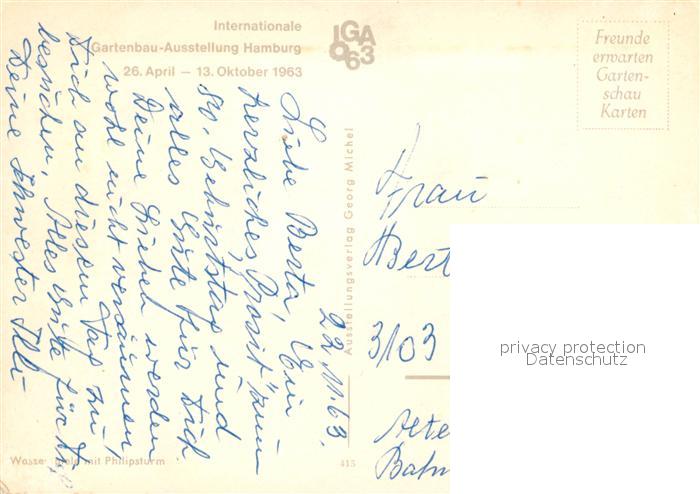 Internationale
Gartenbau-Ausstellung Hamburg
26. April – 13. Oktober 1963
IGA 63
Freunde
erwarten
Garten-
schau
Karten
22.11.63.
Liebe Berta, Ein
herzliches "Prosst" zum
80. Geburtstag und
alles Gute für Dich
Deine Lieben werden
wohl nicht versäumen,
Dich an diesem Tag zu
besuchen. Alles Gute für Dich
Deine Schwester
Ausstellungsverlag Georg Michel
Frau
Bert
3103
Alte
Bahn
mit Philipsturm
415
privacy protection
Datenschutz